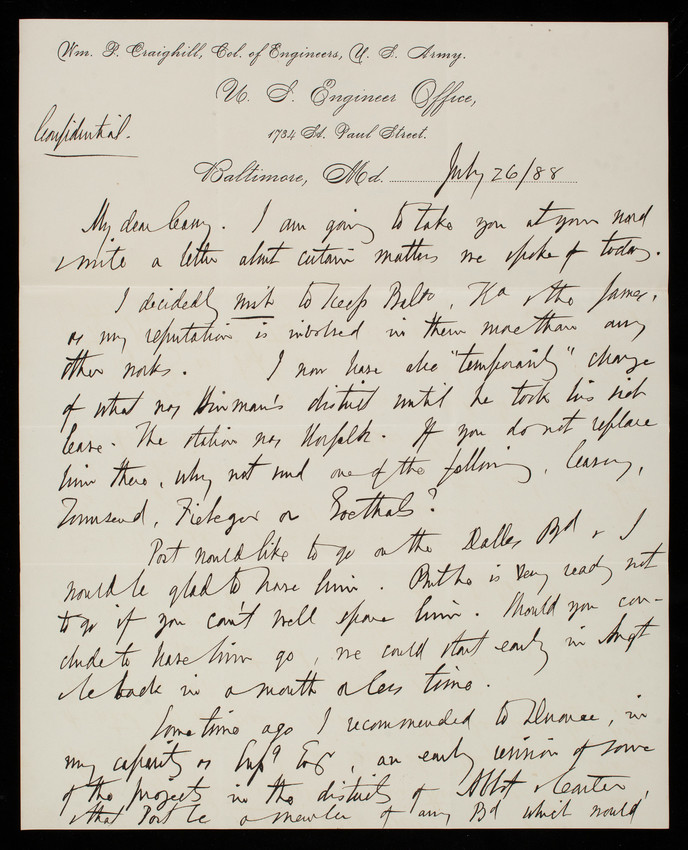 Wm. P. Craighill, Col. of Engineers, U. S. Army.
U. S. Engineer Office,
1734 St. Paul Street.
Confidential.
Baltimore, Md. July 26/88
My dear Casey. I am going to take you at your word
& write a letter about certain matters we spoke of today.
I decidedly wish to keep Balto, Ka & the James,
as my reputation is involved in them more than any
other works. I now have also "temporarily" charge
of what was Hinman's district until he took his sick
leave. The station was Norfolk. If you do not replace
him there, why not send one of the following,
Townsend, Fiebeger or Goethals?
Post would like to go on the Dalles Bd & I
would be glad to have him. But he is very ready not
to go if you can't well spare him. Should you con-
clude to have him go, we could start early in Augt
& be back in a month or less time.
Some time ago I recommended to Duane, in
my capacity as Supg Engr, an early revision of some
of the projects in the districts of Abbot &
that Post be a member of any Bd which would